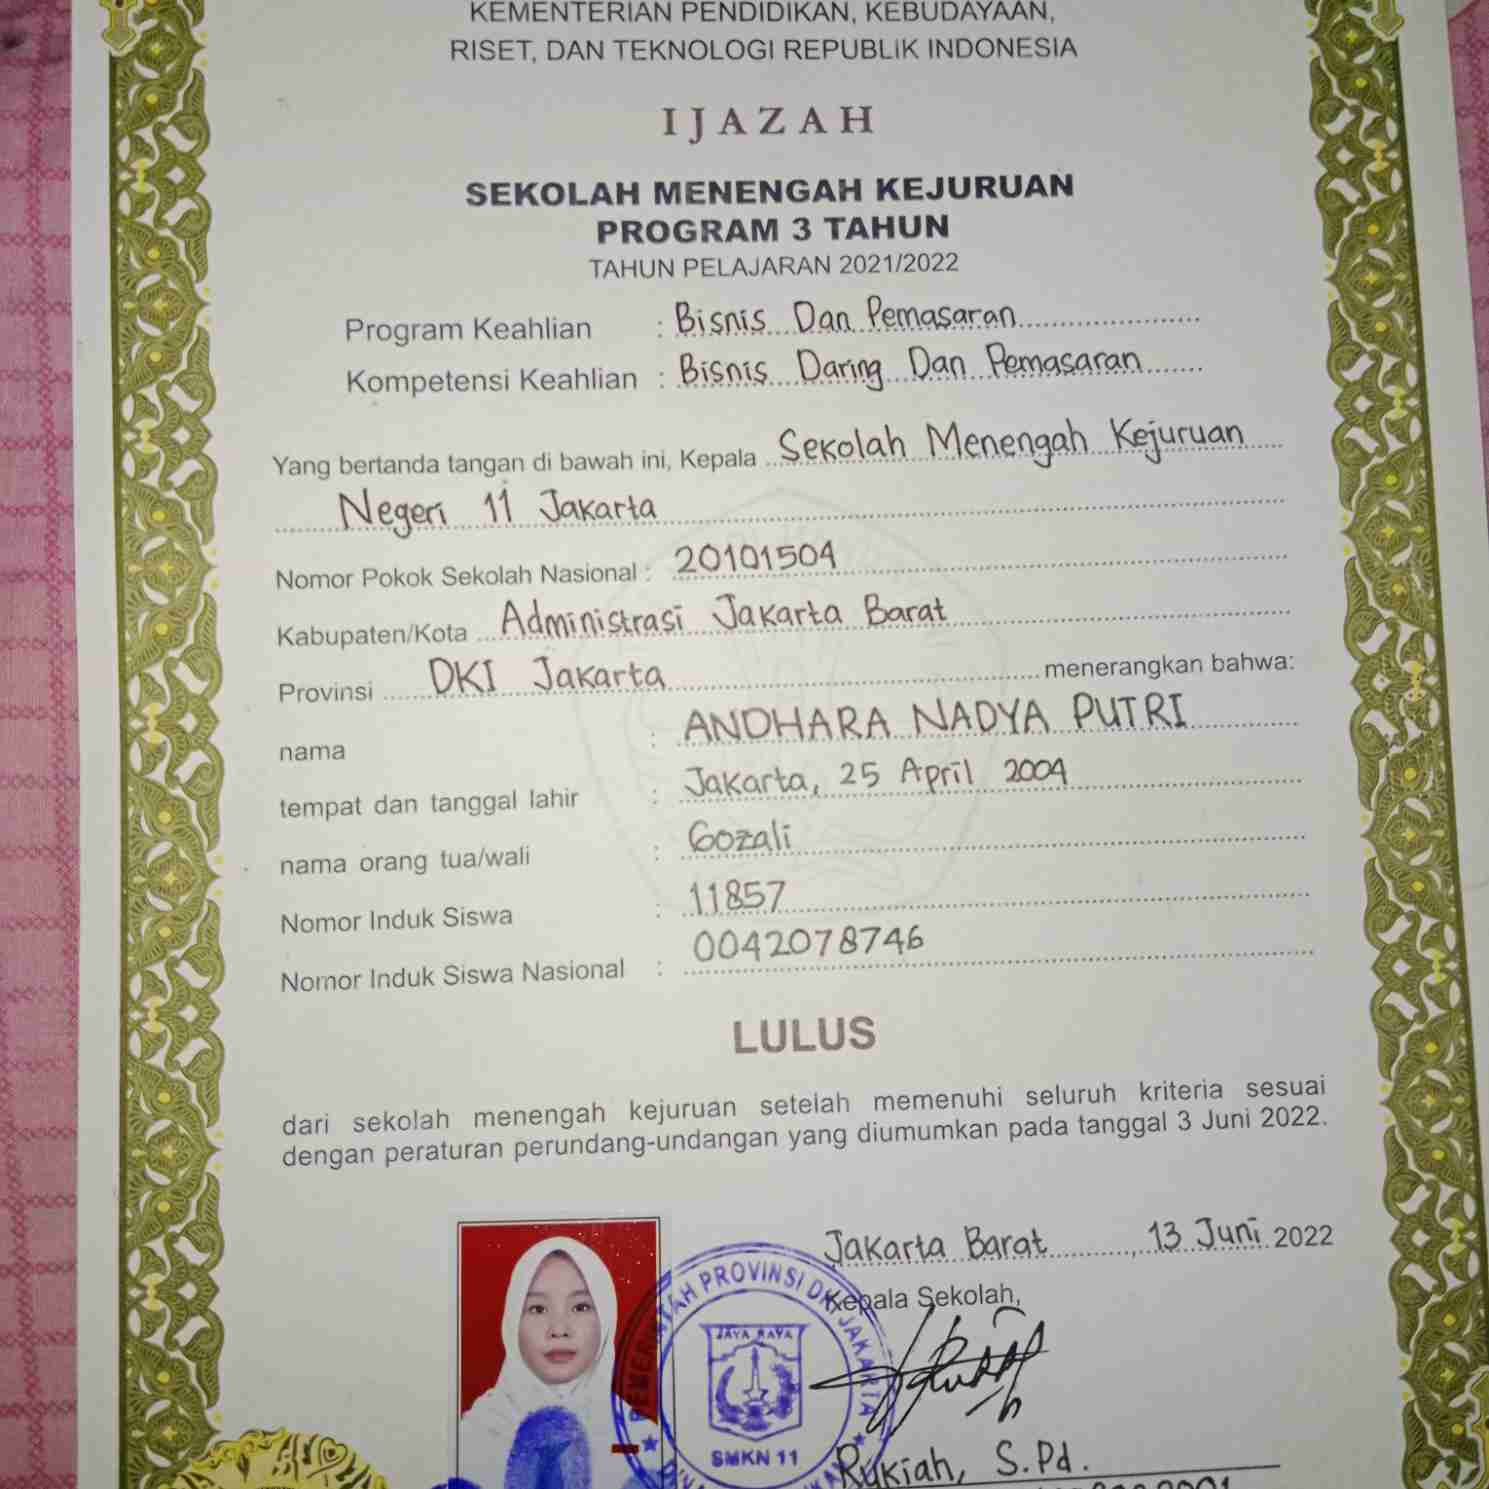 KEMENTERIAN PENDIDIKAN, KEBUDAYAAN,
RISET, DAN TEKNOLOGI REPUBLIK INDONESIA
IJAZAH
SEKOLAH MENENGAH KEJURUAN
PROGRAM 3 TAHUN
TAHUN PELAJARAN 2021/2022
Program Keahlian : Bisnis Dan Pemasaran
Kompetensi Keahlian : Bisnis Daring Dan Pemasaran
Yang bertanda tangan di bawah ini, Kepala Sekolah Menengah Kejuruan
Negeri 11 Jakarta
Nomor Pokok Sekolah Nasional : 20101504
Kabupaten/Kota Administrasi Jakarta Barat
Provinsi DKI Jakarta menerangkan bahwa:
nama : ANDHARA NADYA PUTRI
tempat dan tanggal lahir : Jakarta, 25 April 2004
nama orang tua/wali : Gozali
Nomor Induk Siswa : 11857
Nomor Induk Siswa Nasional : 0042078746
LULUS
dari sekolah menengah kejuruan setelah memenuhi seluruh kriteria sesuai
dengan peraturan perundang-undangan yang diumumkan pada tanggal 3 Juni 2022.
Jakarta Barat, 13 Juni 2022
Kepala Sekolah,
PEMERINTAH PROVINSI DKI JAKARTA
JAYA RAYA
SMKN 11
Rukiah, S.Pd.